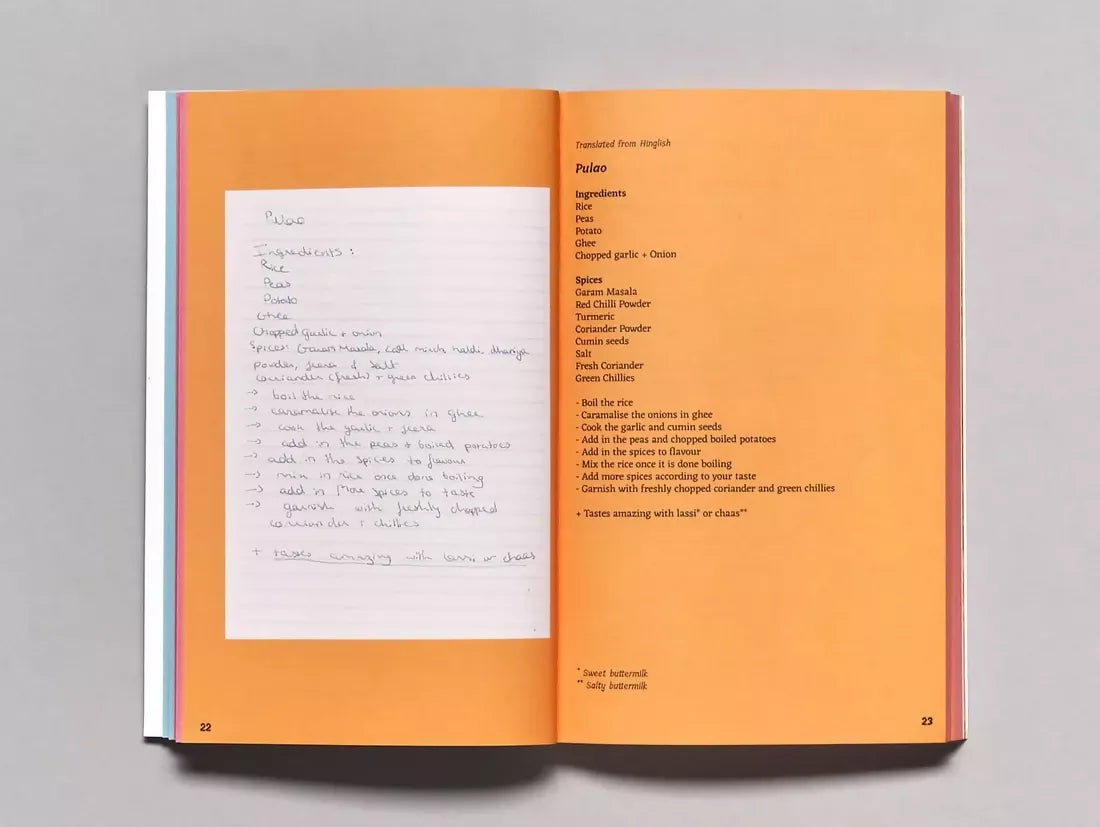 Pulao
Ingredients :
Rice
Peas
Potato
Ghee
Chopped garlic + onion
Spices: Garam Masala, lal mirch, haldi, dhaniya
powder, jeera & salt
coriander (fresh) + green chillies
→ boil the rice
→ caramalise the onions in ghee
→ cook the garlic + jeera
→ add in the peas + boiled potatoes
→ add in the spices to flavour
→ mix in rice once done boiling
→ add in more spices to taste
→ garnish with freshly chopped
coriander + chillies
+ tastes amazing with lassi or chaas
22
Translated from Hinglish
Pulao
Ingredients
Rice
Peas
Potato
Ghee
Chopped garlic + Onion
Spices
Garam Masala
Red Chilli Powder
Turmeric
Coriander Powder
Cumin seeds
Salt
Fresh Coriander
Green Chillies
- Boil the rice
- Caramalise the onions in ghee
- Cook the garlic and cumin seeds
- Add in the peas and chopped boiled potatoes
- Add in the spices to flavour
- Mix the rice once it is done boiling
- Add more spices according to your taste
- Garnish with freshly chopped coriander and green chillies
+ Tastes amazing with lassi* or chaas**
* Sweet buttermilk
** Salty buttermilk
23